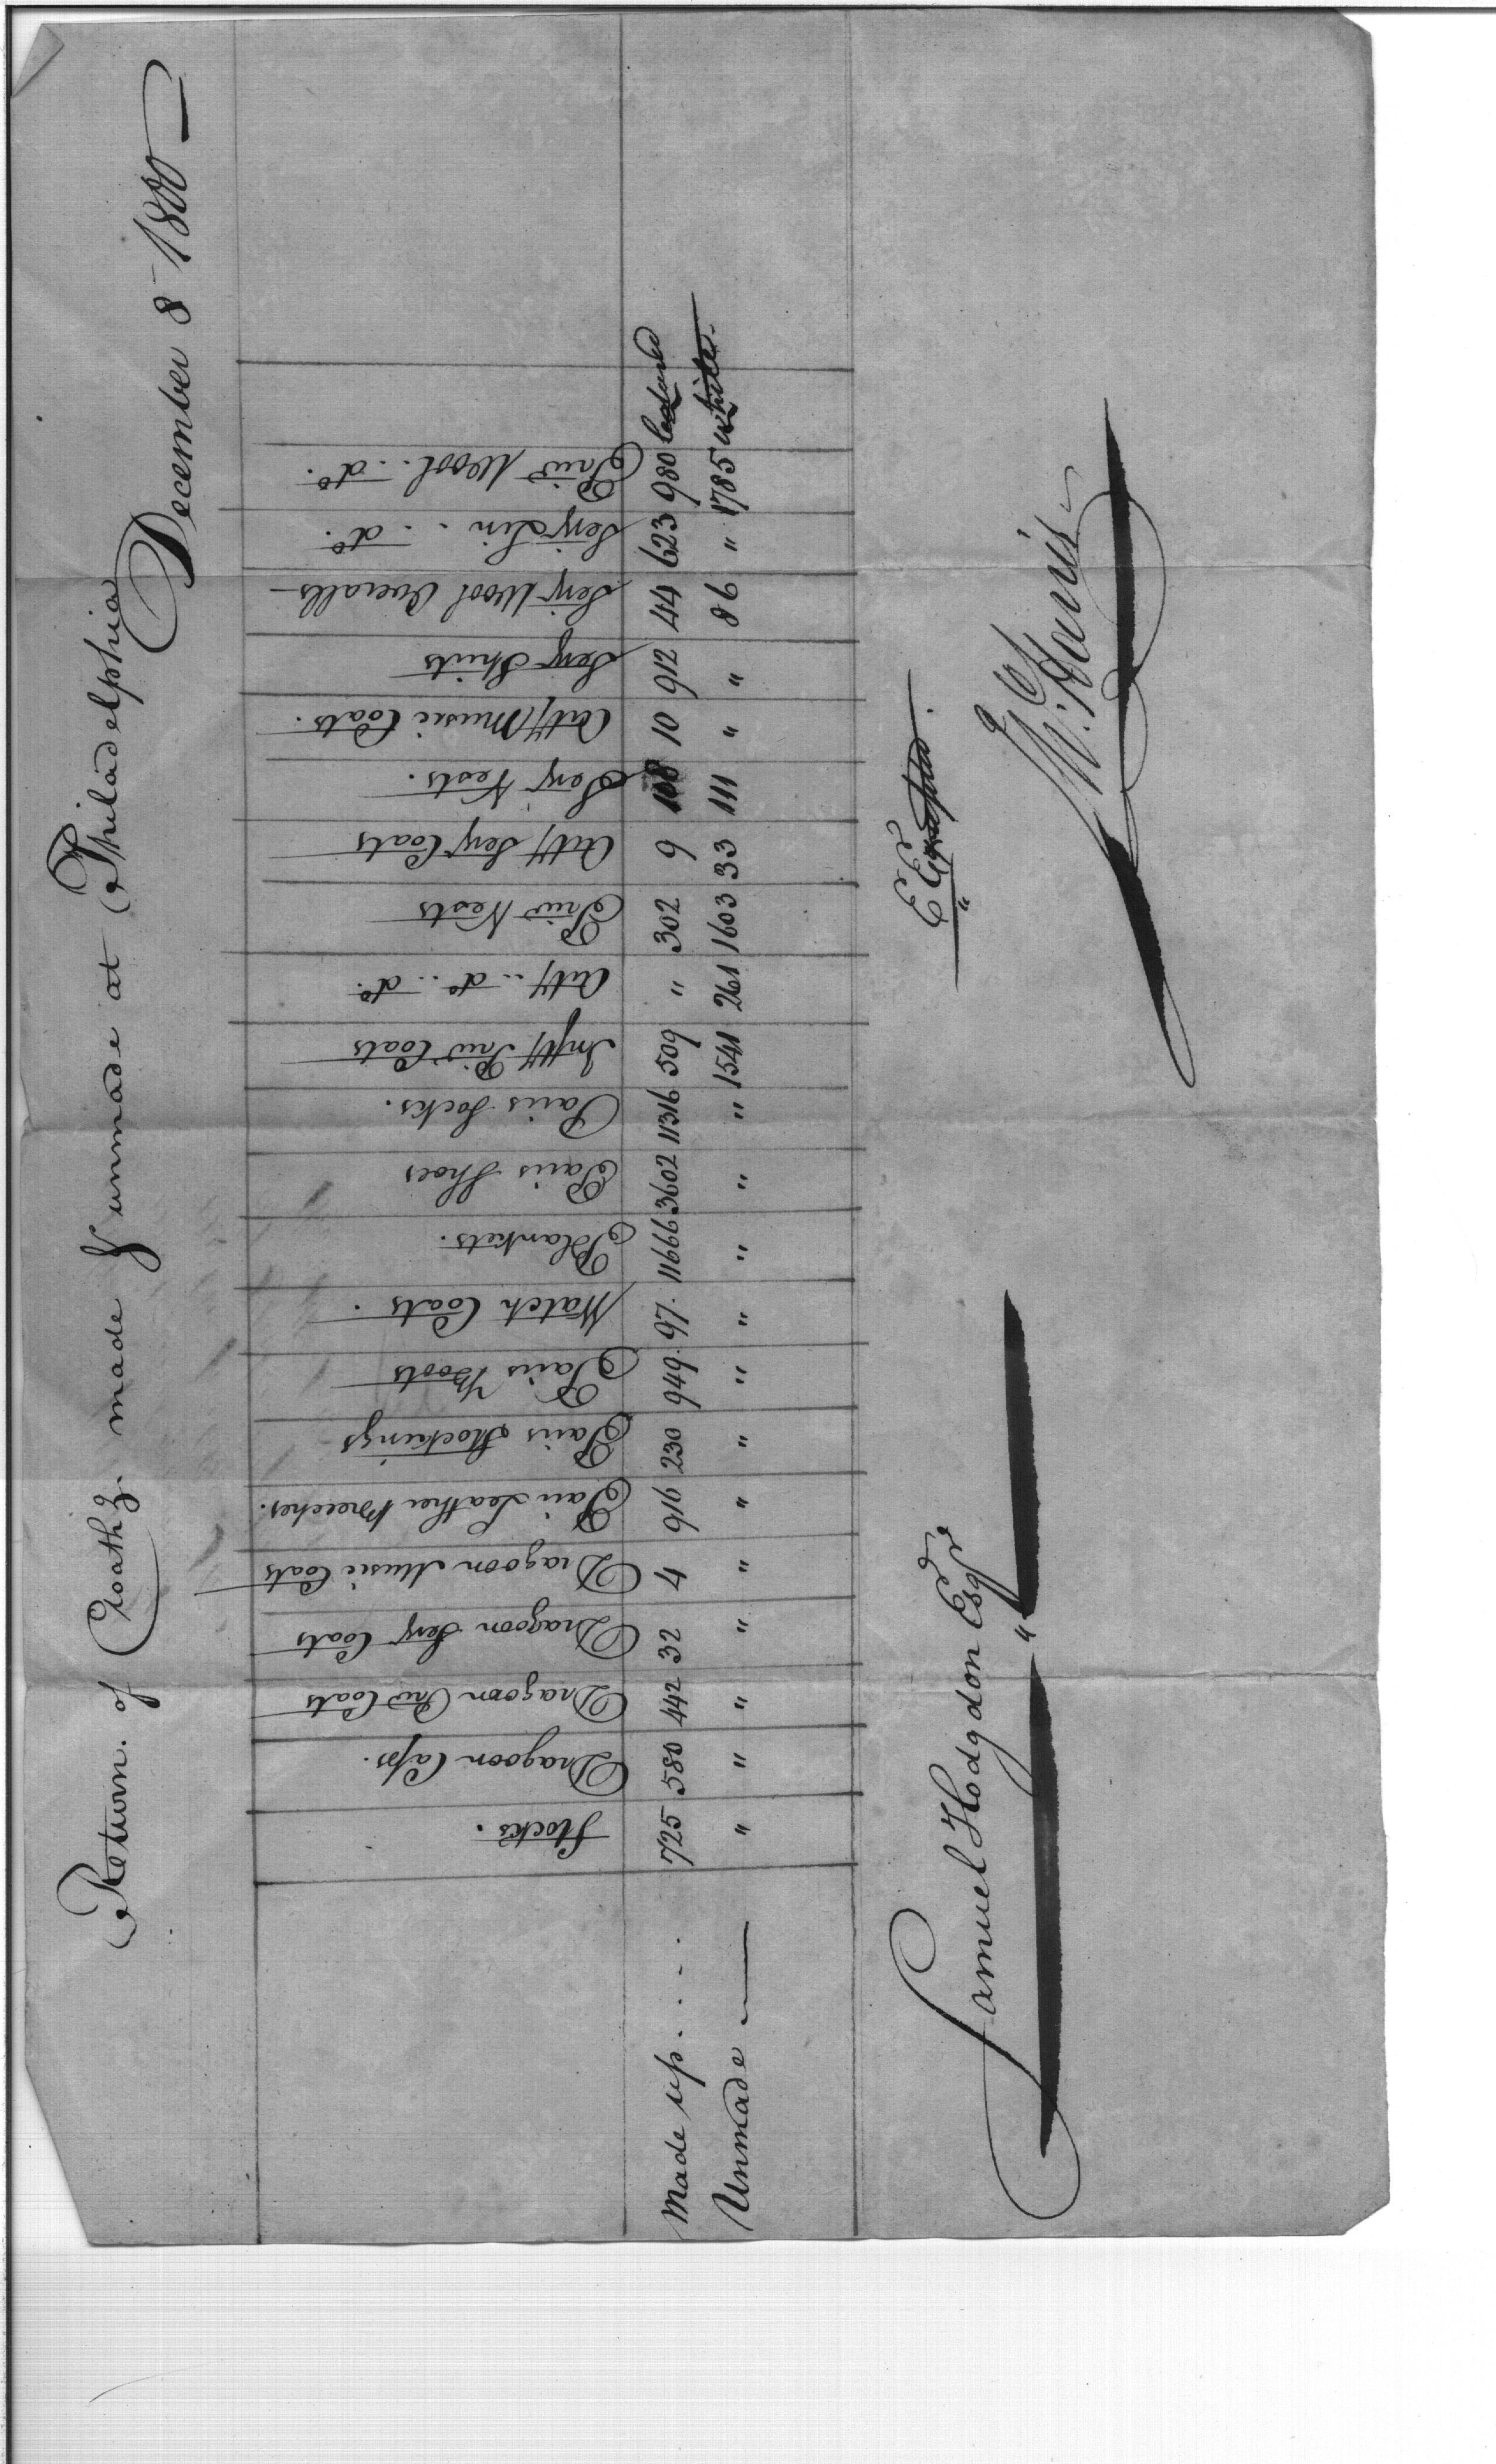 Return. of Cloathg. made & unmade at Philadelphia
December 8 1800
Stocks.
Dragoon Caps.
Dragoon Priv Coats
Dragoon Serjt Coats
Dragoon Music Coats
Pair Leather Breeches.
Pairs Stockings
Pairs Boots
Watch Coats.
Blankets.
Pairs Shoes
Pairs Socks.
Infty Priv Coats
Arty .. do .. do.
Priv Vests
Arty Serjt Coats
Serjt Vests.
Arty Music Coats.
Serjt Shirts
Serjt Wool Overalls
Serjt Lin .. do.
Priv Wool .. do.
Made up .... 725 580 442 32 4 916 230 949. 97. 11666 3602 11316 509 " 302 9 108 10 912 44 623 980
Unmade " " " " " " " " " " " " 1541 261 1603 33 111 " " 86 " 1785 white
E E
"
Samuel Hodgdon Esqre
"
W. Harris